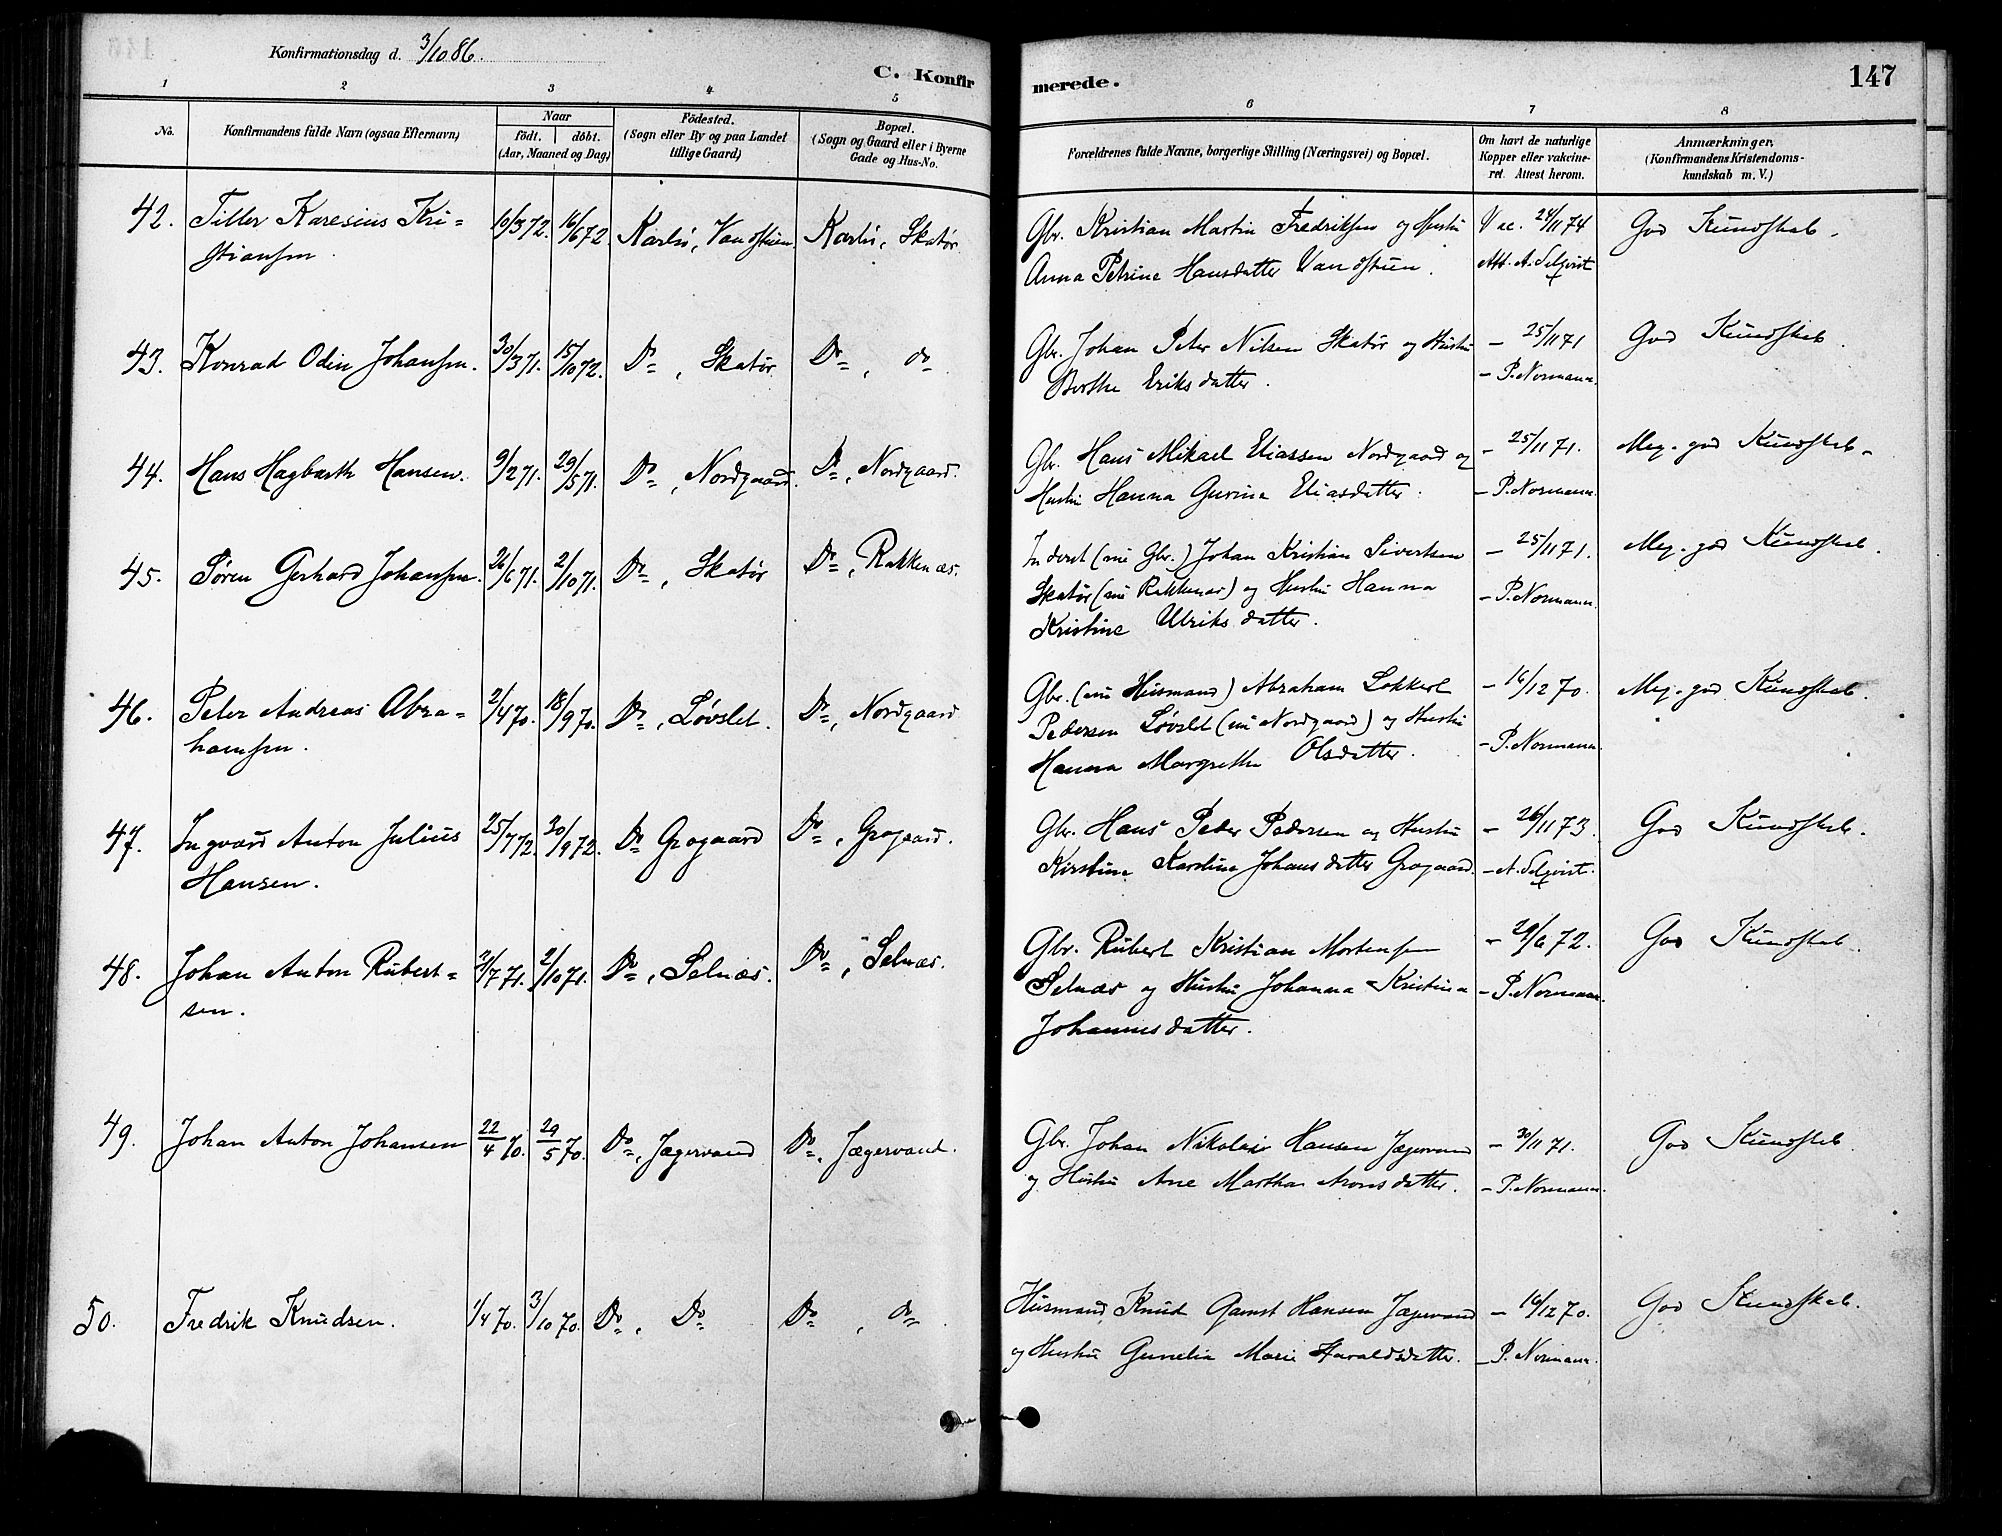 Konfirmationsdag d. 3/10 86.
C. Konfir
merede.
147
1 2 3 4 5 6 7 8
No.
Konfirmandens fulde Navn (ogsaa Efternavn)
Naar
födt. döbt.
(Aar, Maaned og Dag)
Födested.
(Sogn eller By og paa Landet
tillige Gaard)
Bopæl.
(Sogn og Gaard eller i Byerne
Gade og Hus-No.
Forældrenes fulde Navne, borgerlige Stilling (Næringsvei) og Bopæl.
Om havt de naturlige
Kopper eller vakcine-
ret. Attest herom.
Anmærkninger.
(Konfirmandens Kristendoms-
kundskab m. V.)
42. Tiller Karesius Kri- 10/3 72. 16/6 72 Karlsö, Vandstuen Karlsö, Skatör Gbr. Kristian Martin Fredriksen og Hustru Vac. 24/11 74 God Kundskab.
stiansen. Anna Petrine Hansdatter Vandstuen. Att. A. Selqvist
43. Konrad Odin Johansen. 30/3 71. 15/10 72. Do, Skatör Do, do Gbr. Johan Peter Nilsen Skatör og Hustru – 25/11 71 God Kundskab.
Berthe Eriksdatter. – P. Normann.
44. Hans Hagbarth Hansen. 9/2 71. 29/5 71. Do, Nordgaard. Do, Nordgaard. Gbr. Hans Mikael Eliassen Nordgaard og – 25/11 71. Meg. god Kundskab.
Hustru Hanna Gurina Eliasdatter. – P. Normann.
45. Sören Gerhard Johansen. 26/6 71. 2/10 71. Do, Skatör Do, Rakkenæs. Inderst (nu Gbr.) Johan Kristian Sivertsen – 25/11 71. Meg. god Kundskab.
Skatör (nu Rakkenæs) og Hustru Hanna – P. Normann.
Kristine Ulriksdatter.
46. Peter Andreas Abra- 2/4 70. 18/9 70. Do, Lövslet. Do, Nordgaard Gbr. (nu Husmand) Abraham Lokkert – 16/12 70. Meg. god Kundskab.
hamsen. Pedersen Lövslet (nu Nordgaard) og Hustru – P. Normann.
Hanna Margrethe Olsdatter.
47. Ingvard Anton Julius 25/7 72. 30/9 72. Do Grogaard Do, Grogaard. Gbr. Hans Peder Pedersen og Hustru – 26/11 73. God Kundskab.
Hansen. Kirstina Karolina Johansdatter Grogaard. – A. Selqvist.
48. Johan Anton Rubert- 2/7 71. 2/10 71. Do, Selnæs. Do, Selnæs. Gbr. Rubert Kristian Mortensen – 29/6 72. God Kundskab.
sen. Selnæs og Hustru Johanna Kristina – P. Normann.
Johannesdatter.
49. Johan Anton Johansen 22/4 70. 29/5 70. Do, Jægervand Do, Jægervand. Gbr. Johan Nikolai Hansen Jægervand – 30/11 71. God Kundskab.
og Hustru Ane Martha Aronsdatter. – P. Normann.
50. Fredrik Knudsen. 1/4 70. 3/10 70. Do, Do Do, do Husmand Knud Gamst Hansen Jægervand – 16/12 70. God Kundskab.
og Hustru Gunelia Marie Haraldsdatter. – P. Normann.